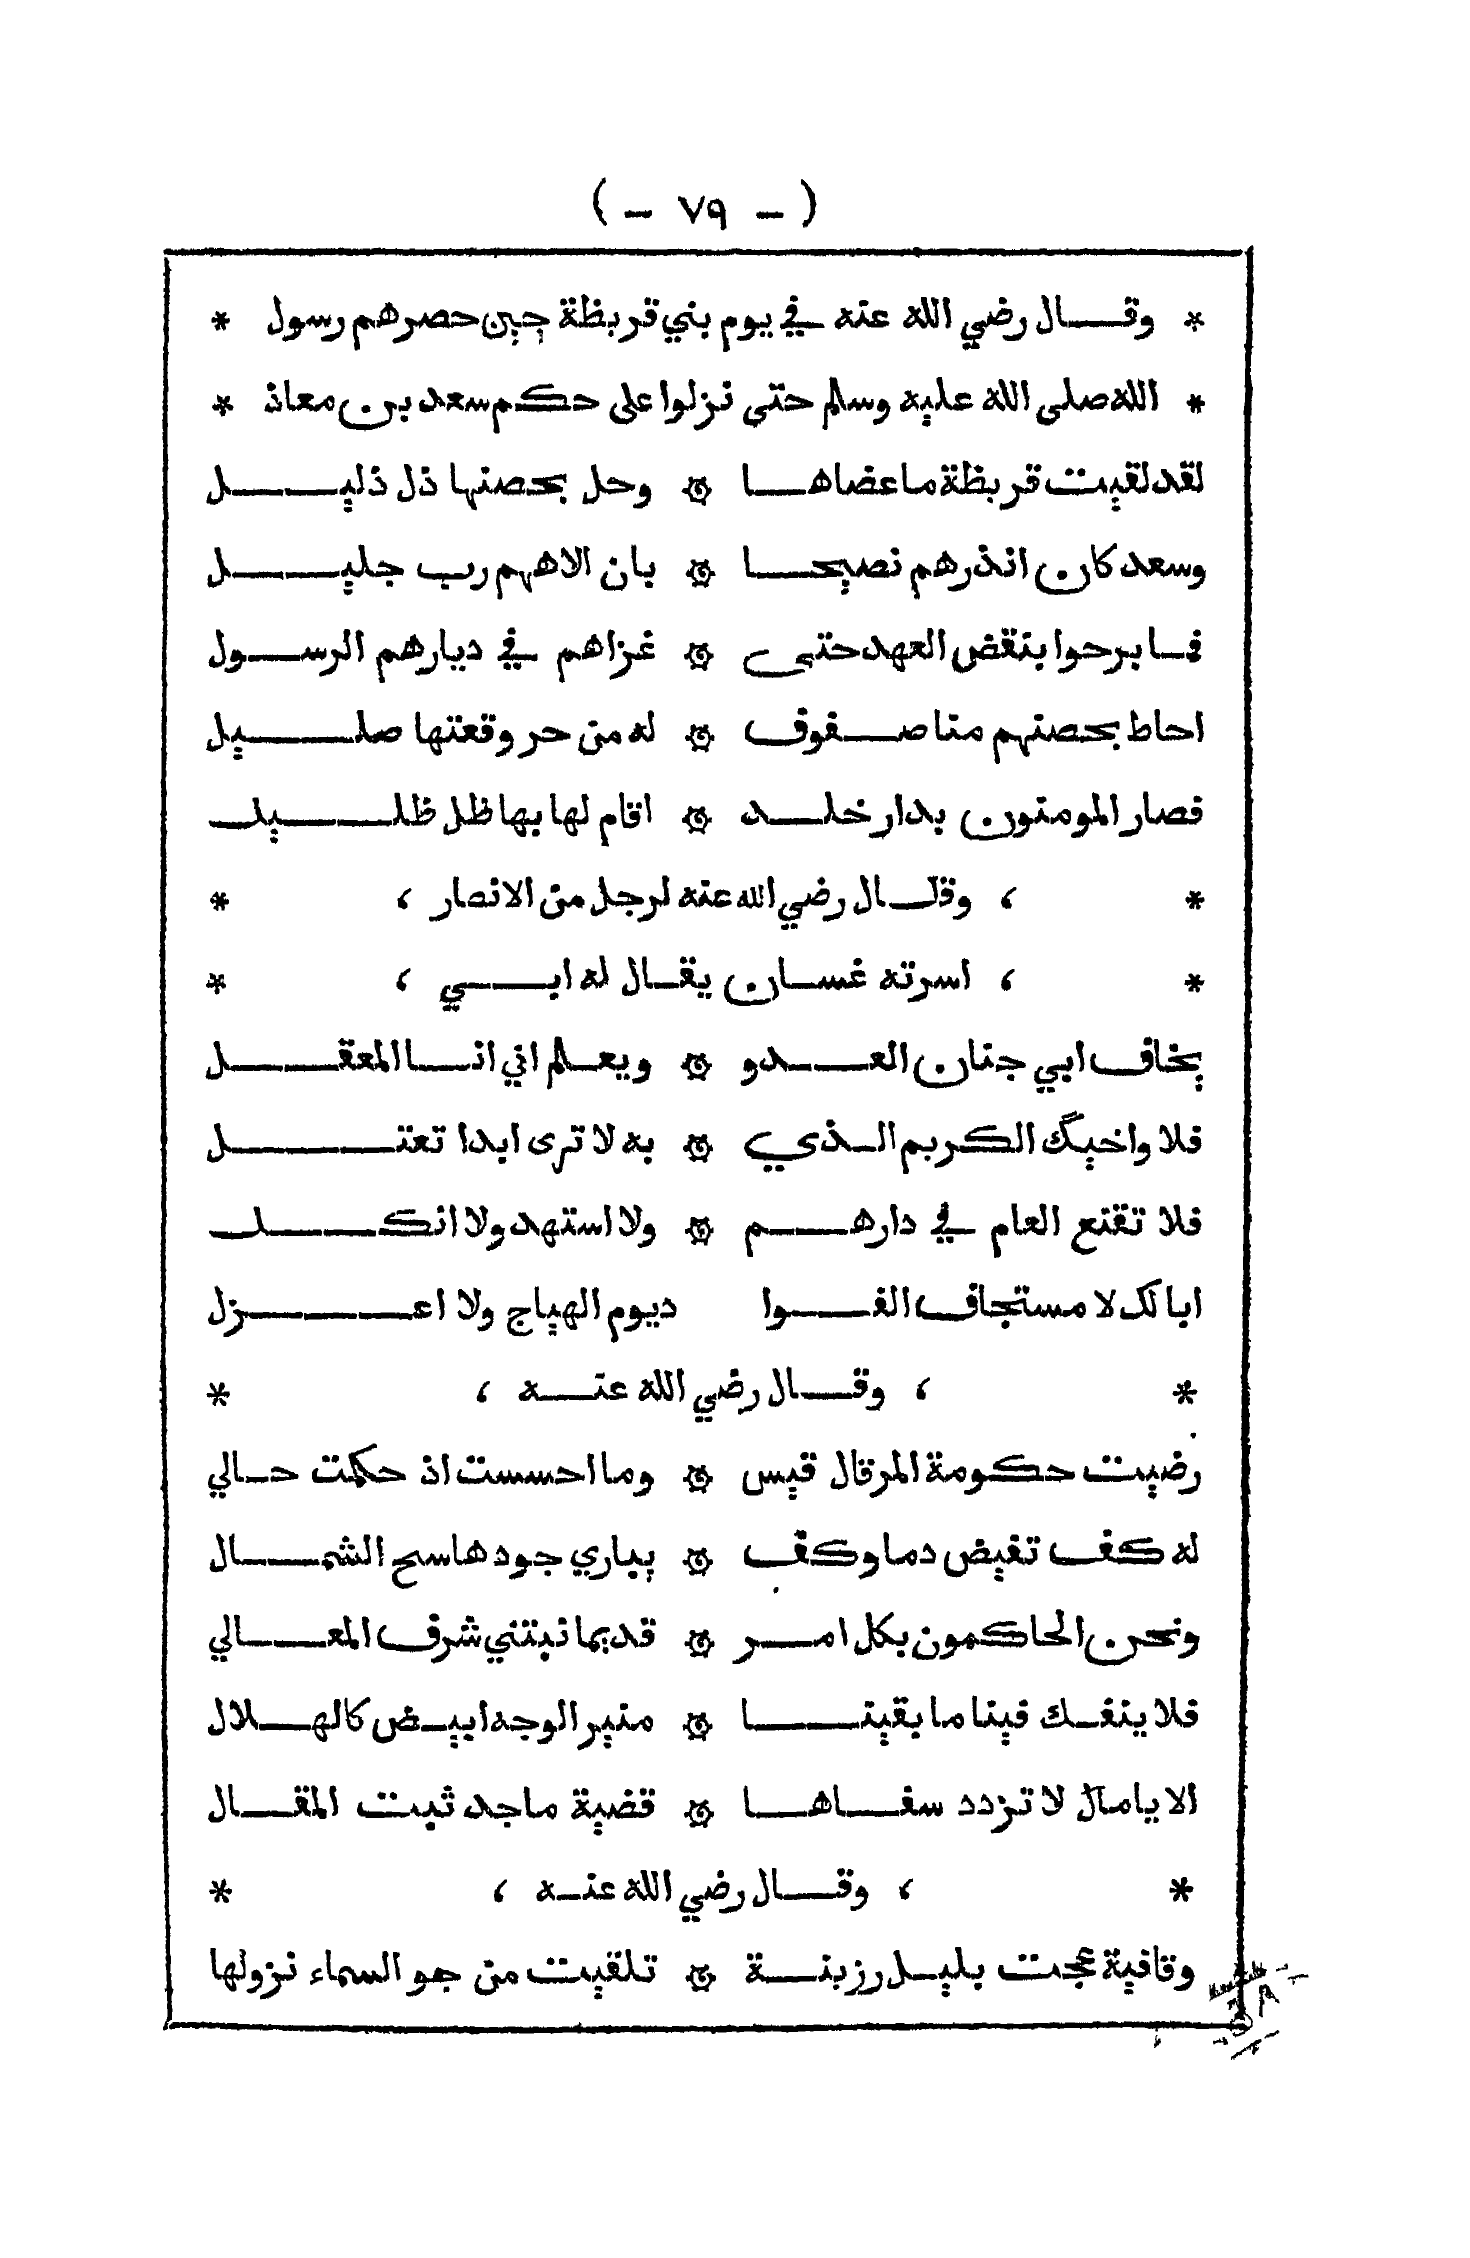 ( - ٧٩ - )
* وقـــال رضي الله عنه في يوم بني قريظة حين حصرهم رسول *
* الله صلى الله عليه وسلم حتى نزلوا على حكم سعد بن معاذ *
لقد لقيت قريظة ما عضاهـــا ۞ وحل بحصنها ذل ذليـــــل
وسعد كان انذرهم نصيحـــا ۞ بان الاههم رب جليـــــل
فـا برحوا بنقض العهد حتى ۞ غزاهم في ديارهم الرســـول
احاط بحصنهم منا صـــفوف ۞ له من حر وقعتها صلـــــيل
فصار المومنون بدار خلـــد ۞ اقام لها بها ظل ظلـــــيل
* ، وقــال رضي الله عنه لرجل من الانصار ، *
* ، اسرته غسـان يقـال له ابـــي ، *
يخاف ابي جنان العـــدو ۞ ويعـلم اني انـــا المعقـــــل
فلا واخيك الكريم الـذي ۞ به لا ترى ابدا تعتـــــل
فلا تقنع العام في دارهـــم ۞ ولا استهد ولا انكـــــل
ابا لك لا مستجاف الفـــوا ديوم الهياج ولا اعـــــزل
* ، وقـــال رضي الله عنـــه ، *
رضيت حكومة المرقال قيس ۞ وما احسست اذ حكمت حـالي
له كف تفيض دما وكف ۞ يباري جودها سح الشمـــال
ونحن الحاكمون بكل امـــر ۞ قديما نبتني شرف المعـــالي
فلا ينفـك فينا ما بقينـــا ۞ منير الوجه ابيـض كالهـــلال
الا يا مال لا تزدد سفـــاهـــا ۞ قضية ماجد ثبت المقـــال
* ، وقـــال رضي الله عنـه ، *
وقافية عجت بليـل رزينـــة ۞ تلقيت من جو السماء نزولها